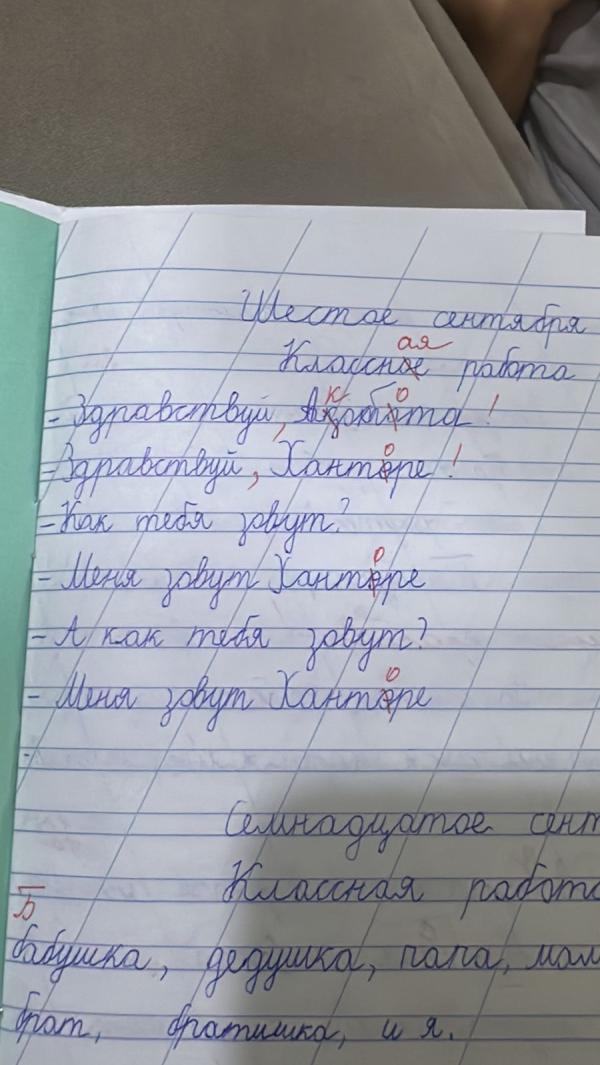 Шестое сентября
ая
Классное работа
к о
- Здравствуй, !
о
- Здравствуй, Ханторе!
- Как тебя зовут?
о
- Меня зовут Ханторе
- А как тебя зовут?
о
- Меня зовут Ханторе
-
Семнадцатое сент
Классная работа
Б
бабушка, дедушка, папа, мам
брат, братишка, и я.